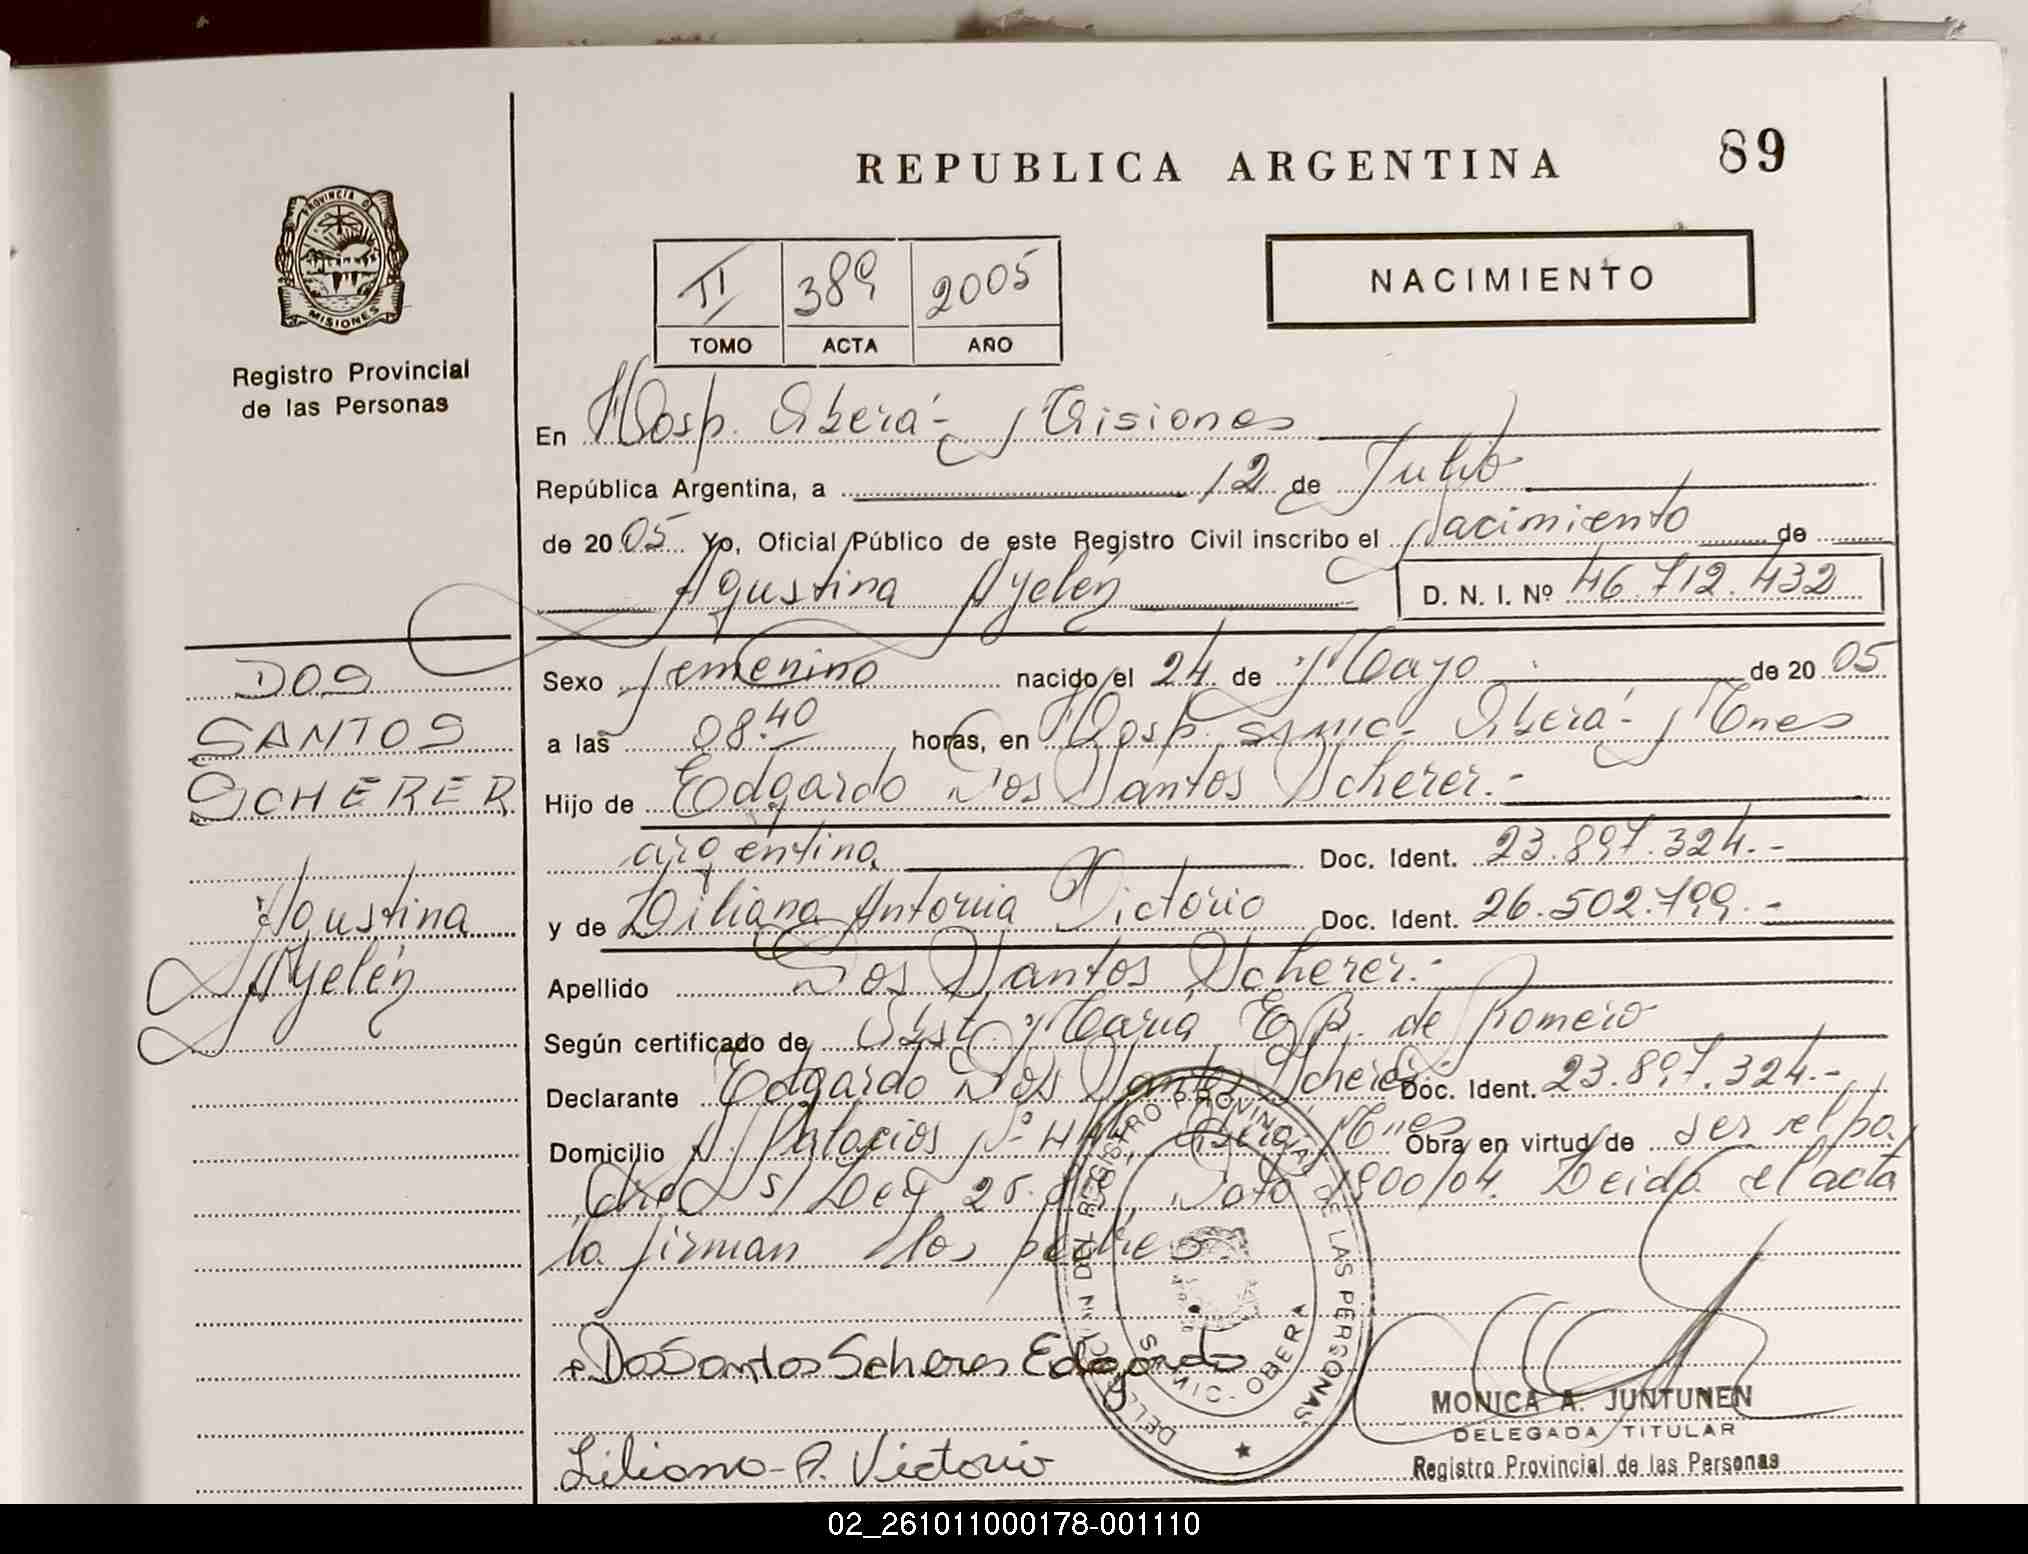 REPUBLICA ARGENTINA
89
PROVINCIA D
MISIONES
Registro Provincial
de las Personas
II 389 2005
TOMO ACTA AÑO
NACIMIENTO
En Hosp. Oberá - Misiones
República Argentina, a 12 de Julio
de 2005 Yo, Oficial Público de este Registro Civil inscribo el Nacimiento de
Agustina Ayelén
D. N. I. Nº 46.712.432
DOS
SANTOS
SCHERER
Agustina
Ayelén
Sexo femenino nacido el 24 de Mayo de 2005
a las 08.40 horas, en Hosp. SAMIC - Oberá - Mnes
Hijo de Edgardo Dos Santos Scherer.-
argentina Doc. Ident. 23.897.324.-
y de Liliana Antonia Victorio Doc. Ident. 26.502.799.-
Apellido Dos Santos Scherer.-
Según certificado de Obst. María E. B. de Romero
Declarante Edgardo Dos Santos Scherer Doc. Ident. 23.897.324.-
Domicilio A. Palacios Nº Oberá, Mnes Obra en virtud de ser el pa
dre s/ Ley 1900/04. Leida el acta
la firman los padres
DosSantos Scherer Edgardo
Liliana A. Victorio
DEL REGISTRO PROVINCIAL DE LAS PERSONAS
SAMIC - OBERA
MONICA A. JUNTUNEN
DELEGADA TITULAR
Registro Provincial de las Personas
02_261011000178-001110